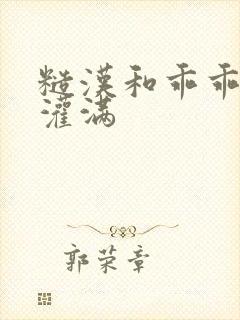 糙漢和乖乖
灌满
郭荣章